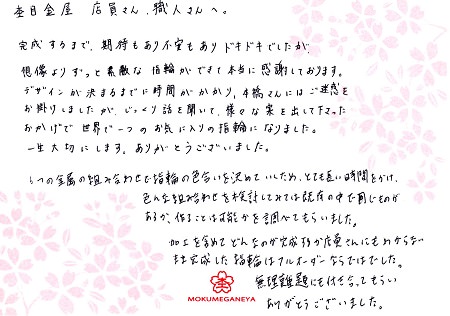 杢目金屋 店員さん、職人さんへ。
完成するまで、期待もあり不安もありドキドキでしたが、
想像よりずっと素敵な指輪ができて本当に感謝しております。
デザインが決まるまでに時間がかかり、本橋さんにはご迷惑を
お掛けしましたが、じっくり話を聞いて、様々な案を出して下さった
おかげで世界で一つのお気に入りの指輪になりました。
一生大切にします。ありがとうございました。
5つの金属の組み合わせで指輪の色合いを決めていたため、とても長い時間をかけ、
色んな組み合わせを検討してみては既存の中で同じものが
あるか、作ることは可能かを調べてもらいました。
加工を含めてどんなのが完成するか店員さんにもわからない
まま完成した指輪はフルオーダーならではでした。
無理難題にも付き合ってもらい
ありがとうございました。
MOKUMEGANEYA